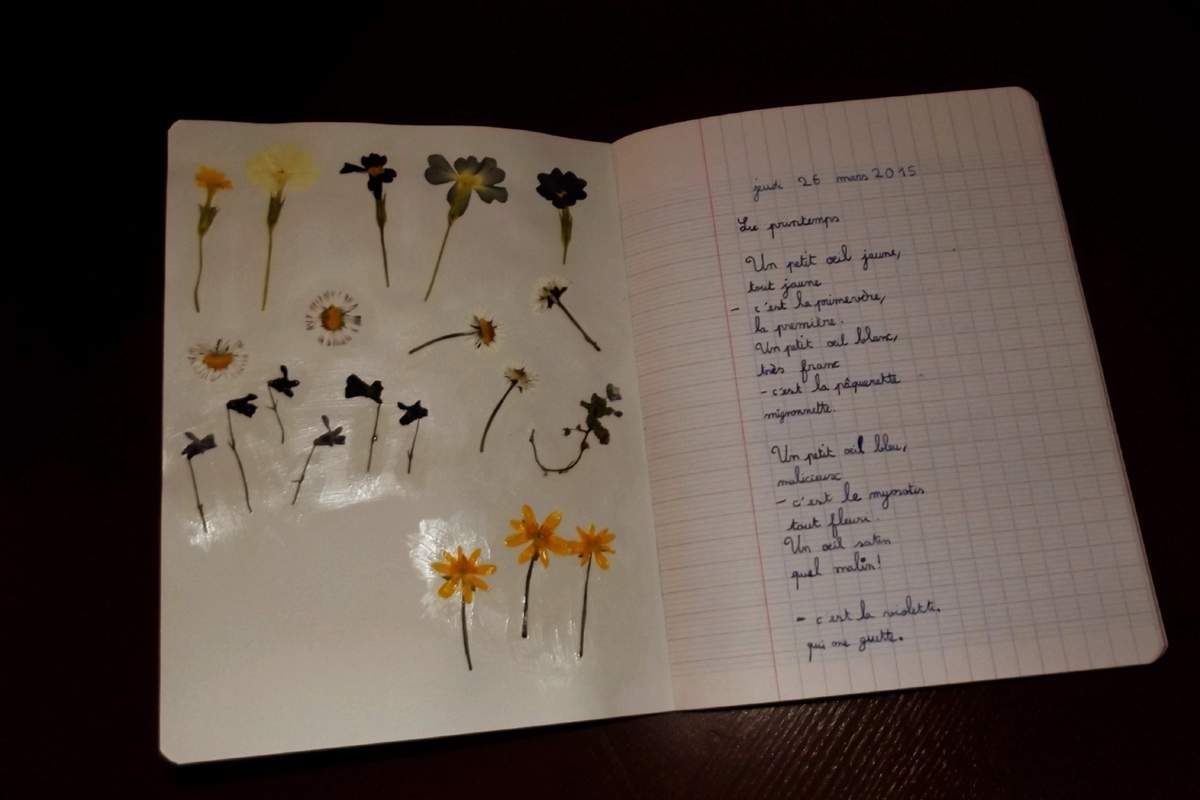 jeudi 26 mars 2015
Le printemps
Un petit œil jaune,
tout jaune
- c'est la primevère,
la première.
Un petit œil blanc,
très franc
- c'est la pâquerette
mignonnette.
Un petit œil bleu,
malicieux
- c'est le myosotis
tout fleuri.
Un œil satin
quel malin!
- c'est la violette.
qui me guette.